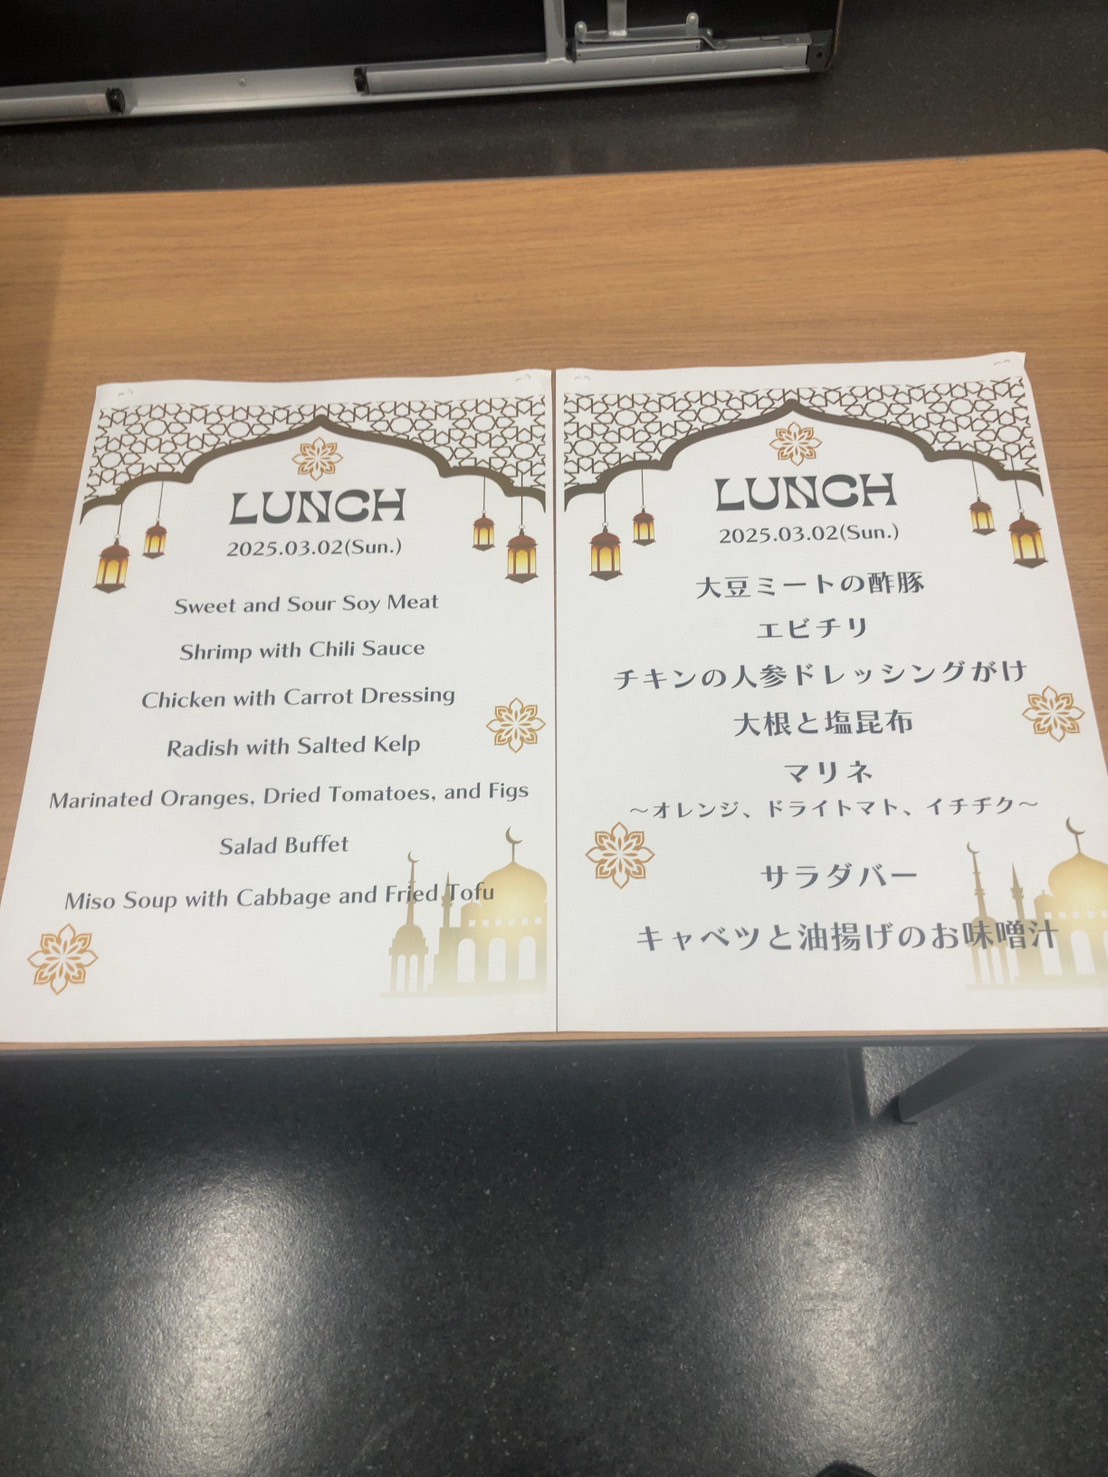 LUNCH
2025.03.02(Sun.)
Sweet and Sour Soy Meat
Shrimp with Chili Sauce
Chicken with Carrot Dressing
Radish with Salted Kelp
Marinated Oranges, Dried Tomatoes, and Figs
Salad Buffet
Miso Soup with Cabbage and Fried Tofu
LUNCH
2025.03.02(Sun.)
大豆ミートの酢豚
エビチリ
チキンの人参ドレッシングがけ
大根と塩昆布
マリネ
～オレンジ、ドライトマト、イチヂク～
サラダバー
キャベツと油揚げのお味噌汁